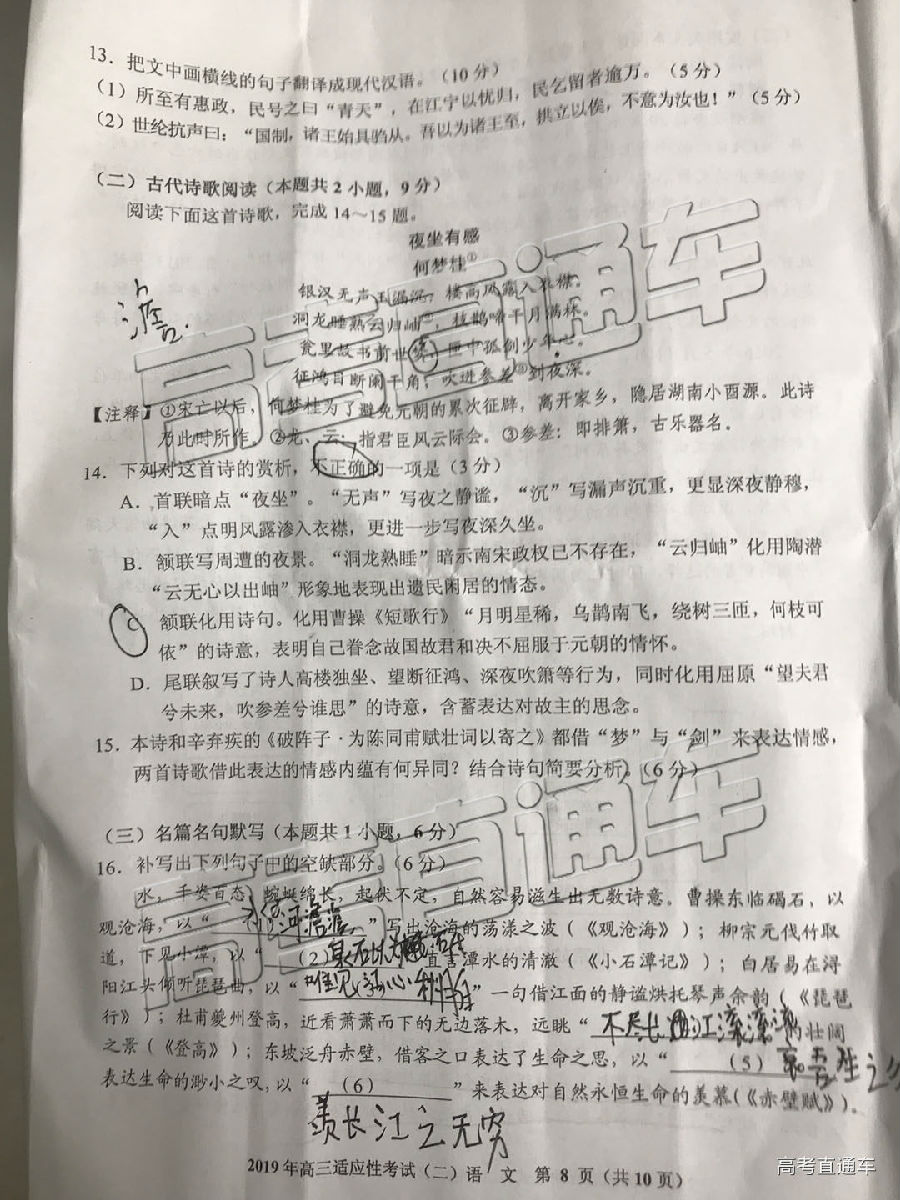 13. 把文中画横线的句子翻译成现代汉语。(10分)
(1) 所至有惠政，民号之曰“青天”，在江宁以忧归，民乞留者逾万。(5分)
(2) 世纶抗声曰：“国制，诸王始具驺从。吾以为诸王至，拱立以俟，不意为汝也！”(5分)
(二) 古代诗歌阅读（本题共2小题，9分）
阅读下面这首诗歌，完成14～15题。
夜坐有感
何梦桂①
银汉无声玉漏沉，楼高风露入衣襟。
澹
洞龙睡熟云归岫②，枝鹊啼干月满林。
瓮里故书前世梦，匣中孤剑少年心。
征鸿目断阑干角，吹进参差③到夜深。
【注释】①宋亡以后，何梦桂为了避免元朝的累次征辟，离开家乡，隐居湖南小酉源。此诗
为此时所作。②龙、云：指君臣风云际会。③参差：即排箫，古乐器名。
14. 下列对这首诗的赏析，不正确的一项是（3分）
A. 首联暗点“夜坐”。“无声”写夜之静谧，“沉”写漏声沉重，更显深夜静穆，
“入”点明风露渗入衣襟，更进一步写夜深久坐。
B. 颔联写周遭的夜景。“洞龙熟睡”暗示南宋政权已不存在，“云归岫”化用陶潜
“云无心以出岫”形象地表现出遗民闲居的情态。
C 颔联化用诗句。化用曹操《短歌行》“月明星稀，乌鹊南飞，绕树三匝，何枝可
依”的诗意，表明自己眷念故国故君和决不屈服于元朝的情怀。
D. 尾联叙写了诗人高楼独坐、望断征鸿、深夜吹箫等行为，同时化用屈原“望夫君
兮未来，吹参差兮谁思”的诗意，含蓄表达对故主的思念。
15. 本诗和辛弃疾的《破阵子·为陈同甫赋壮词以寄之》都借“梦”与“剑”来表达情感，
两首诗歌借此表达的情感内蕴有何异同？结合诗句简要分析。(6分)
(三) 名篇名句默写（本题共1小题，6分）
16. 补写出下列句子中的空缺部分。(6分)
水，千姿百态，蜿蜒绵长，起伏不定，自然容易滋生出无数诗意。曹操东临碣石，以
观沧海，以“水何澹澹，”写出沧海的荡漾之波（《观沧海》）；柳宗元伐竹取
道，下见小潭，以“(2)”直言潭水的清澈（《小石潭记》）；白居易在浔
阳江头倾听琵琶曲，以“唯见江心秋月白”一句借江面的静谧烘托琴声余韵（《琵琶
行》）；杜甫夔州登高，近看萧萧而下的无边落木，远眺“不尽长江滚滚来壮阔
之景（《登高》）；东坡泛舟赤壁，借客之口表达了生命之思，以“(5) 哀吾生之
表达生命的渺小之叹，以“(6)”来表达对自然永恒生命的羡慕(《赤壁赋》)。
羡长江之无穷
2019年高三适应性考试（二）语 文 第8页（共10页）
高考直通车
高考直通车
高考直通车